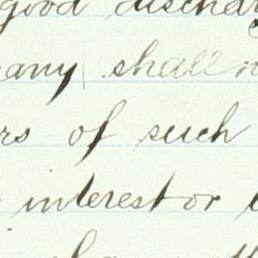 good
any shall
rs of such
interest or